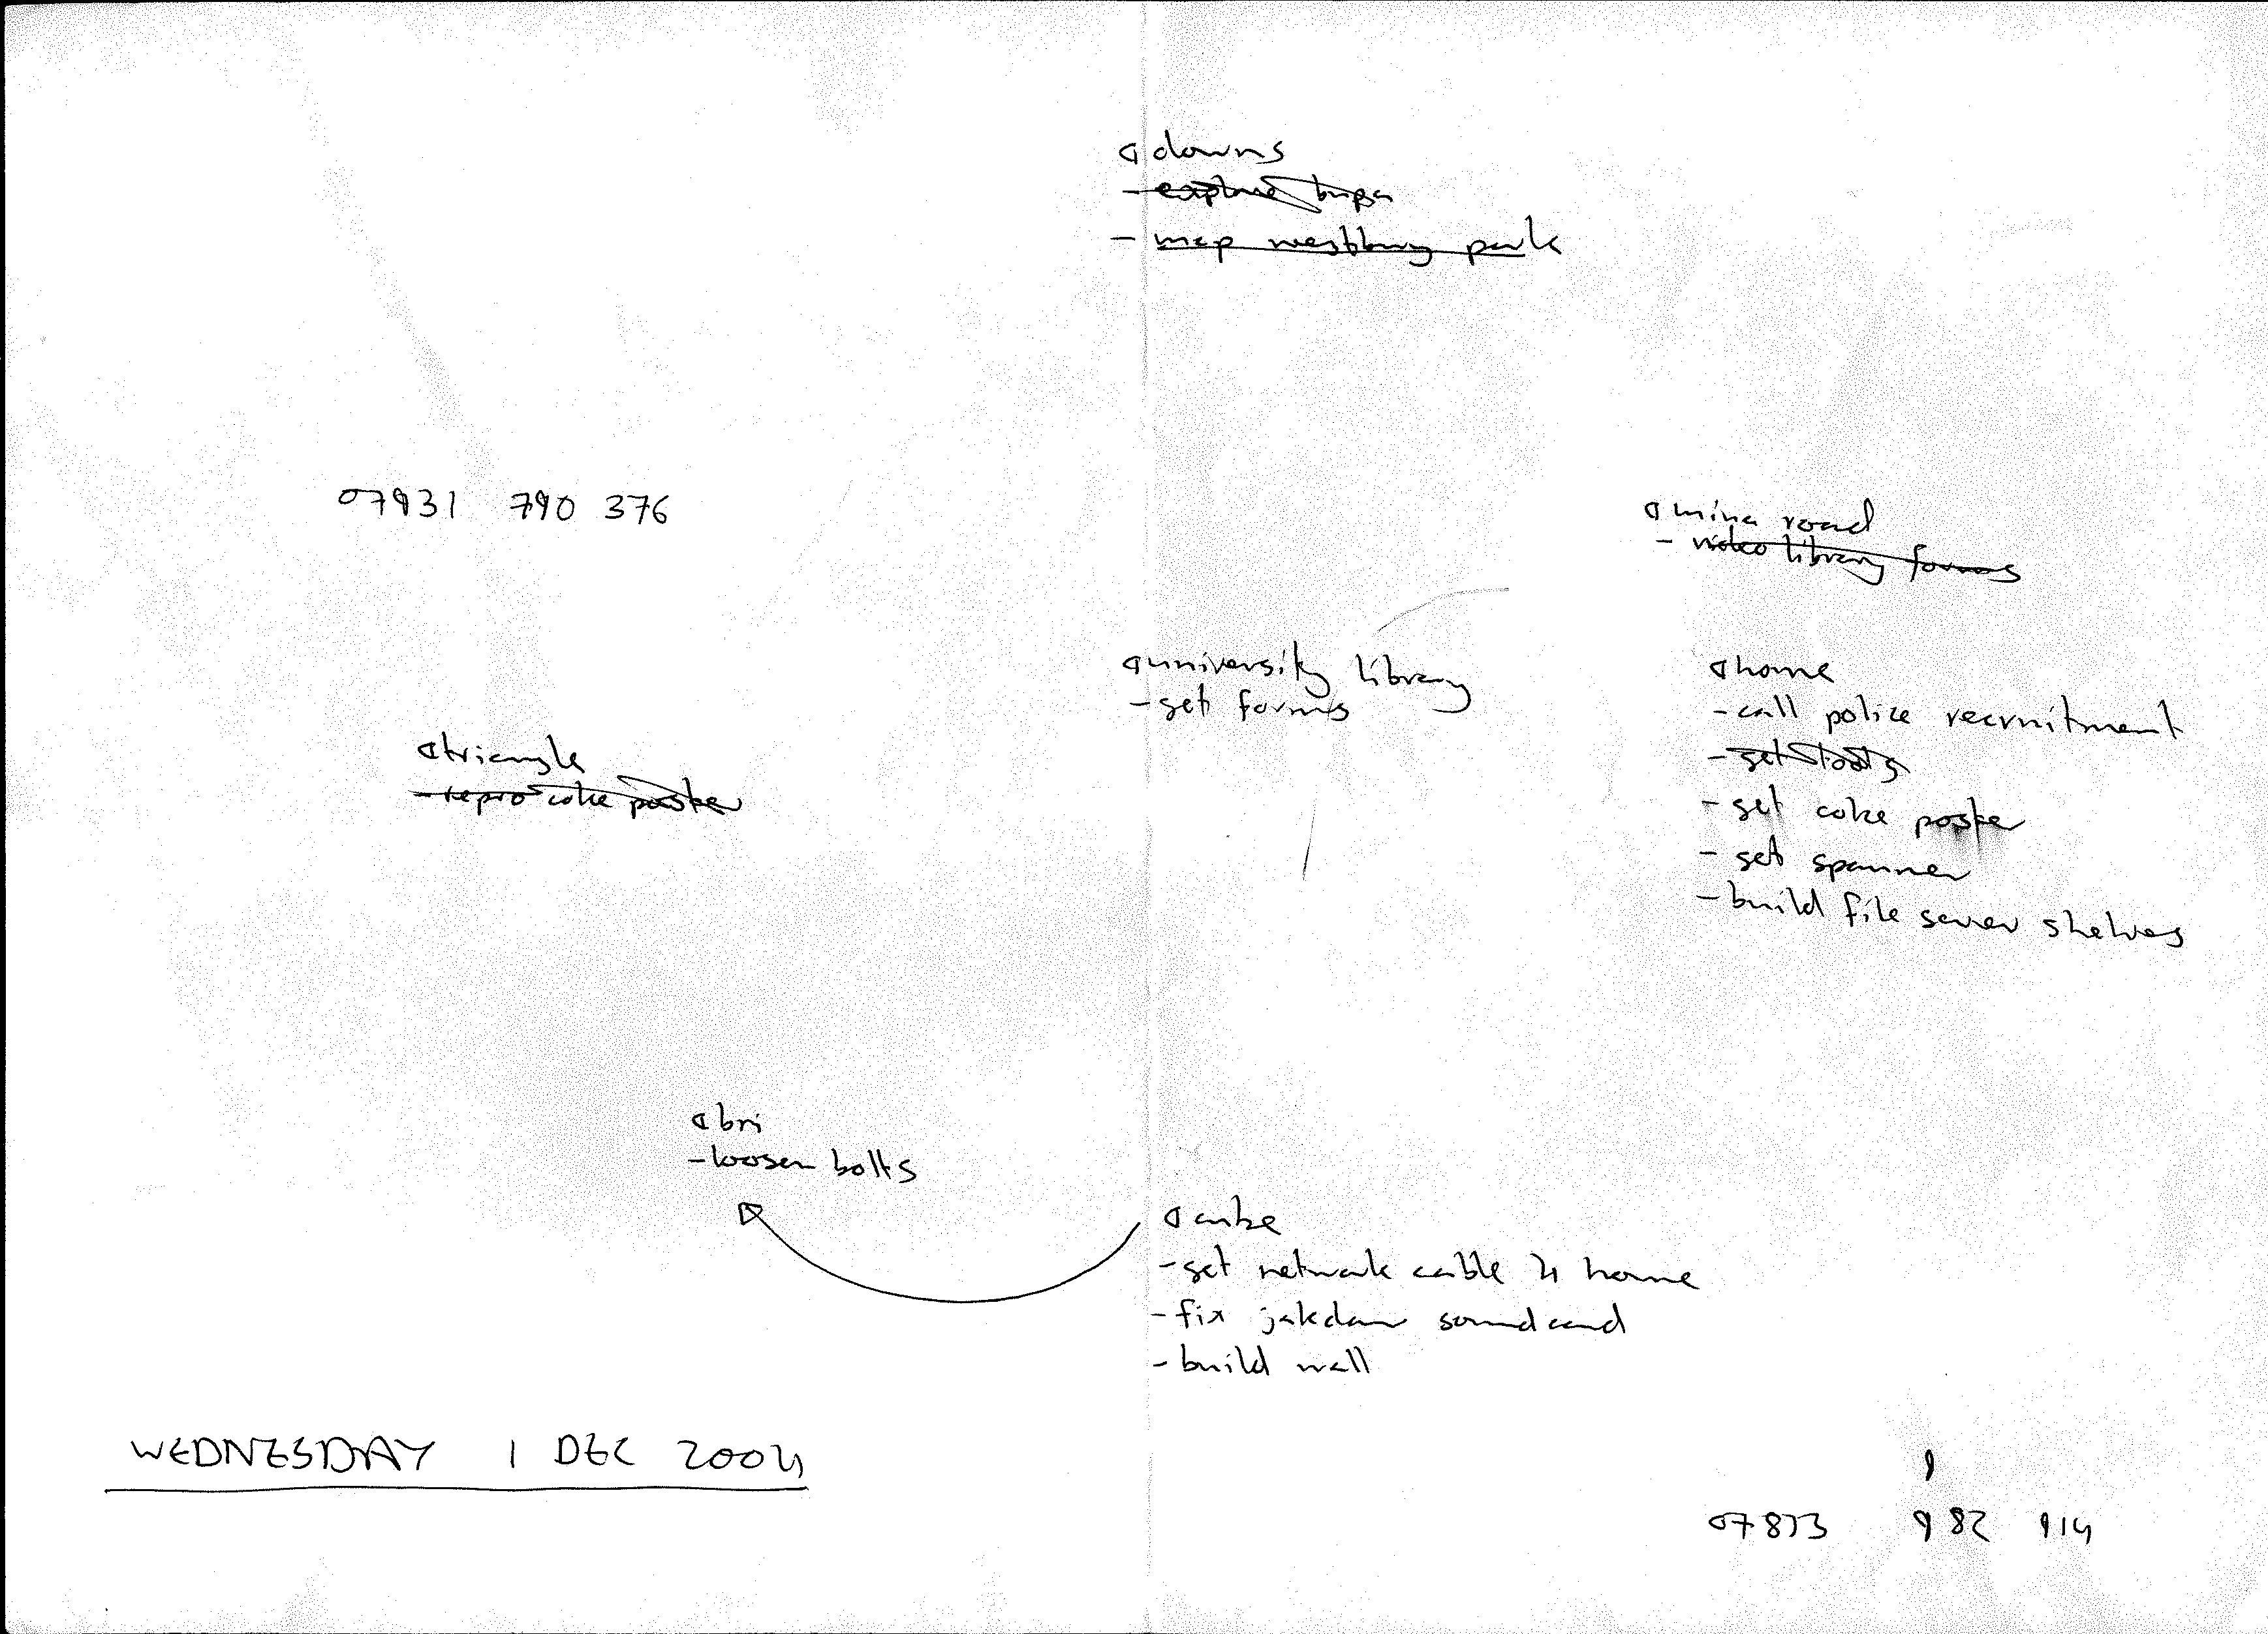 downs
- explore
- map westbury park
07931 790 376
mina road
- video library forms
university library
- get forms
home
- call police recruitment
- get tools
- get coke poster
- get spanner
- build file server shelves
triangle
- repro coke poster
bri
- loosen bolts
cube
- get network cable 4 home
- fix soundcard
- build wall
WEDNESDAY 1 DEC 2004
9
07813 982 914